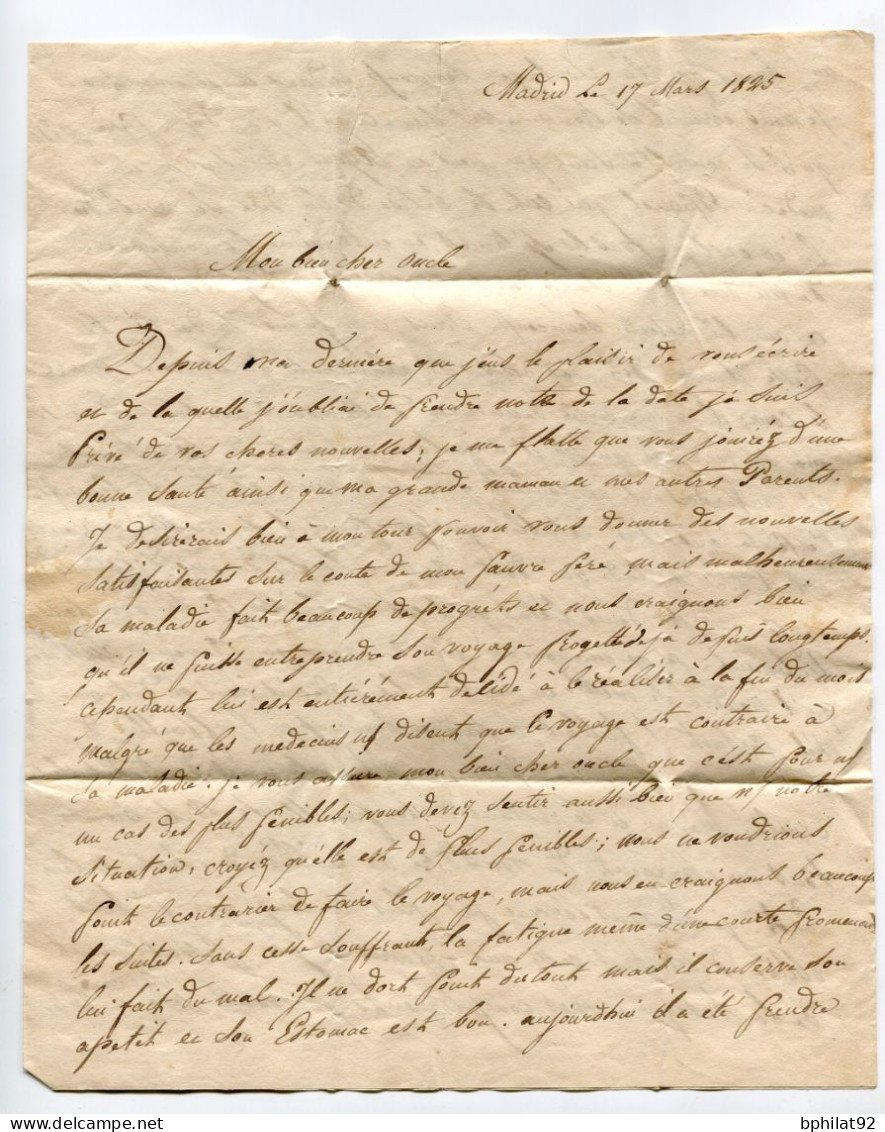 Madrid Le 17 Mars 1825
Mon bien cher oncle
Depuis ma derniére que j'eus le plaisir de vous écrire
et de la quelle j'oubliai de prendre note de la date je suis
Privé de vos cheres nouvelles; je me flatte que vous jouiréz d'une
bonne santé ainsi que ma grande maman et mes autres Parents.
Je desirerais bien à mon tour pouvoir vous donner des nouvelles
satisfaisantes sur le conte de mon pauvre péré, mais malheureusement
sa maladie fait beaucoup de progréts et nous craignons bien
qu'il ne puisse entreprendre son voyage progetté déjà depuis longtemps.
cependant lui est entiérément décidé à le réaliser à la fin du mois
malgré que les medecins ns disent que le voyage est contraire à
sa maladie. je vous assure mon bien cher oncle que c'est pour ns
un cas des plus penibles; vous devez sentir aussi bien que ns notre
situation, croyéz qu'elle est de plus penibles; nous ne voudrions
point le contrarier de faire le voyage, mais nous en craignons beaucoup
les suites. sans cesse souffrant, la fatigue même d'une courte promenade
lui fait du mal. Il ne dort point du tout mais il conserve son
apetit et son Estomac est bon. aujourdhui il a été prendre
bphilat92